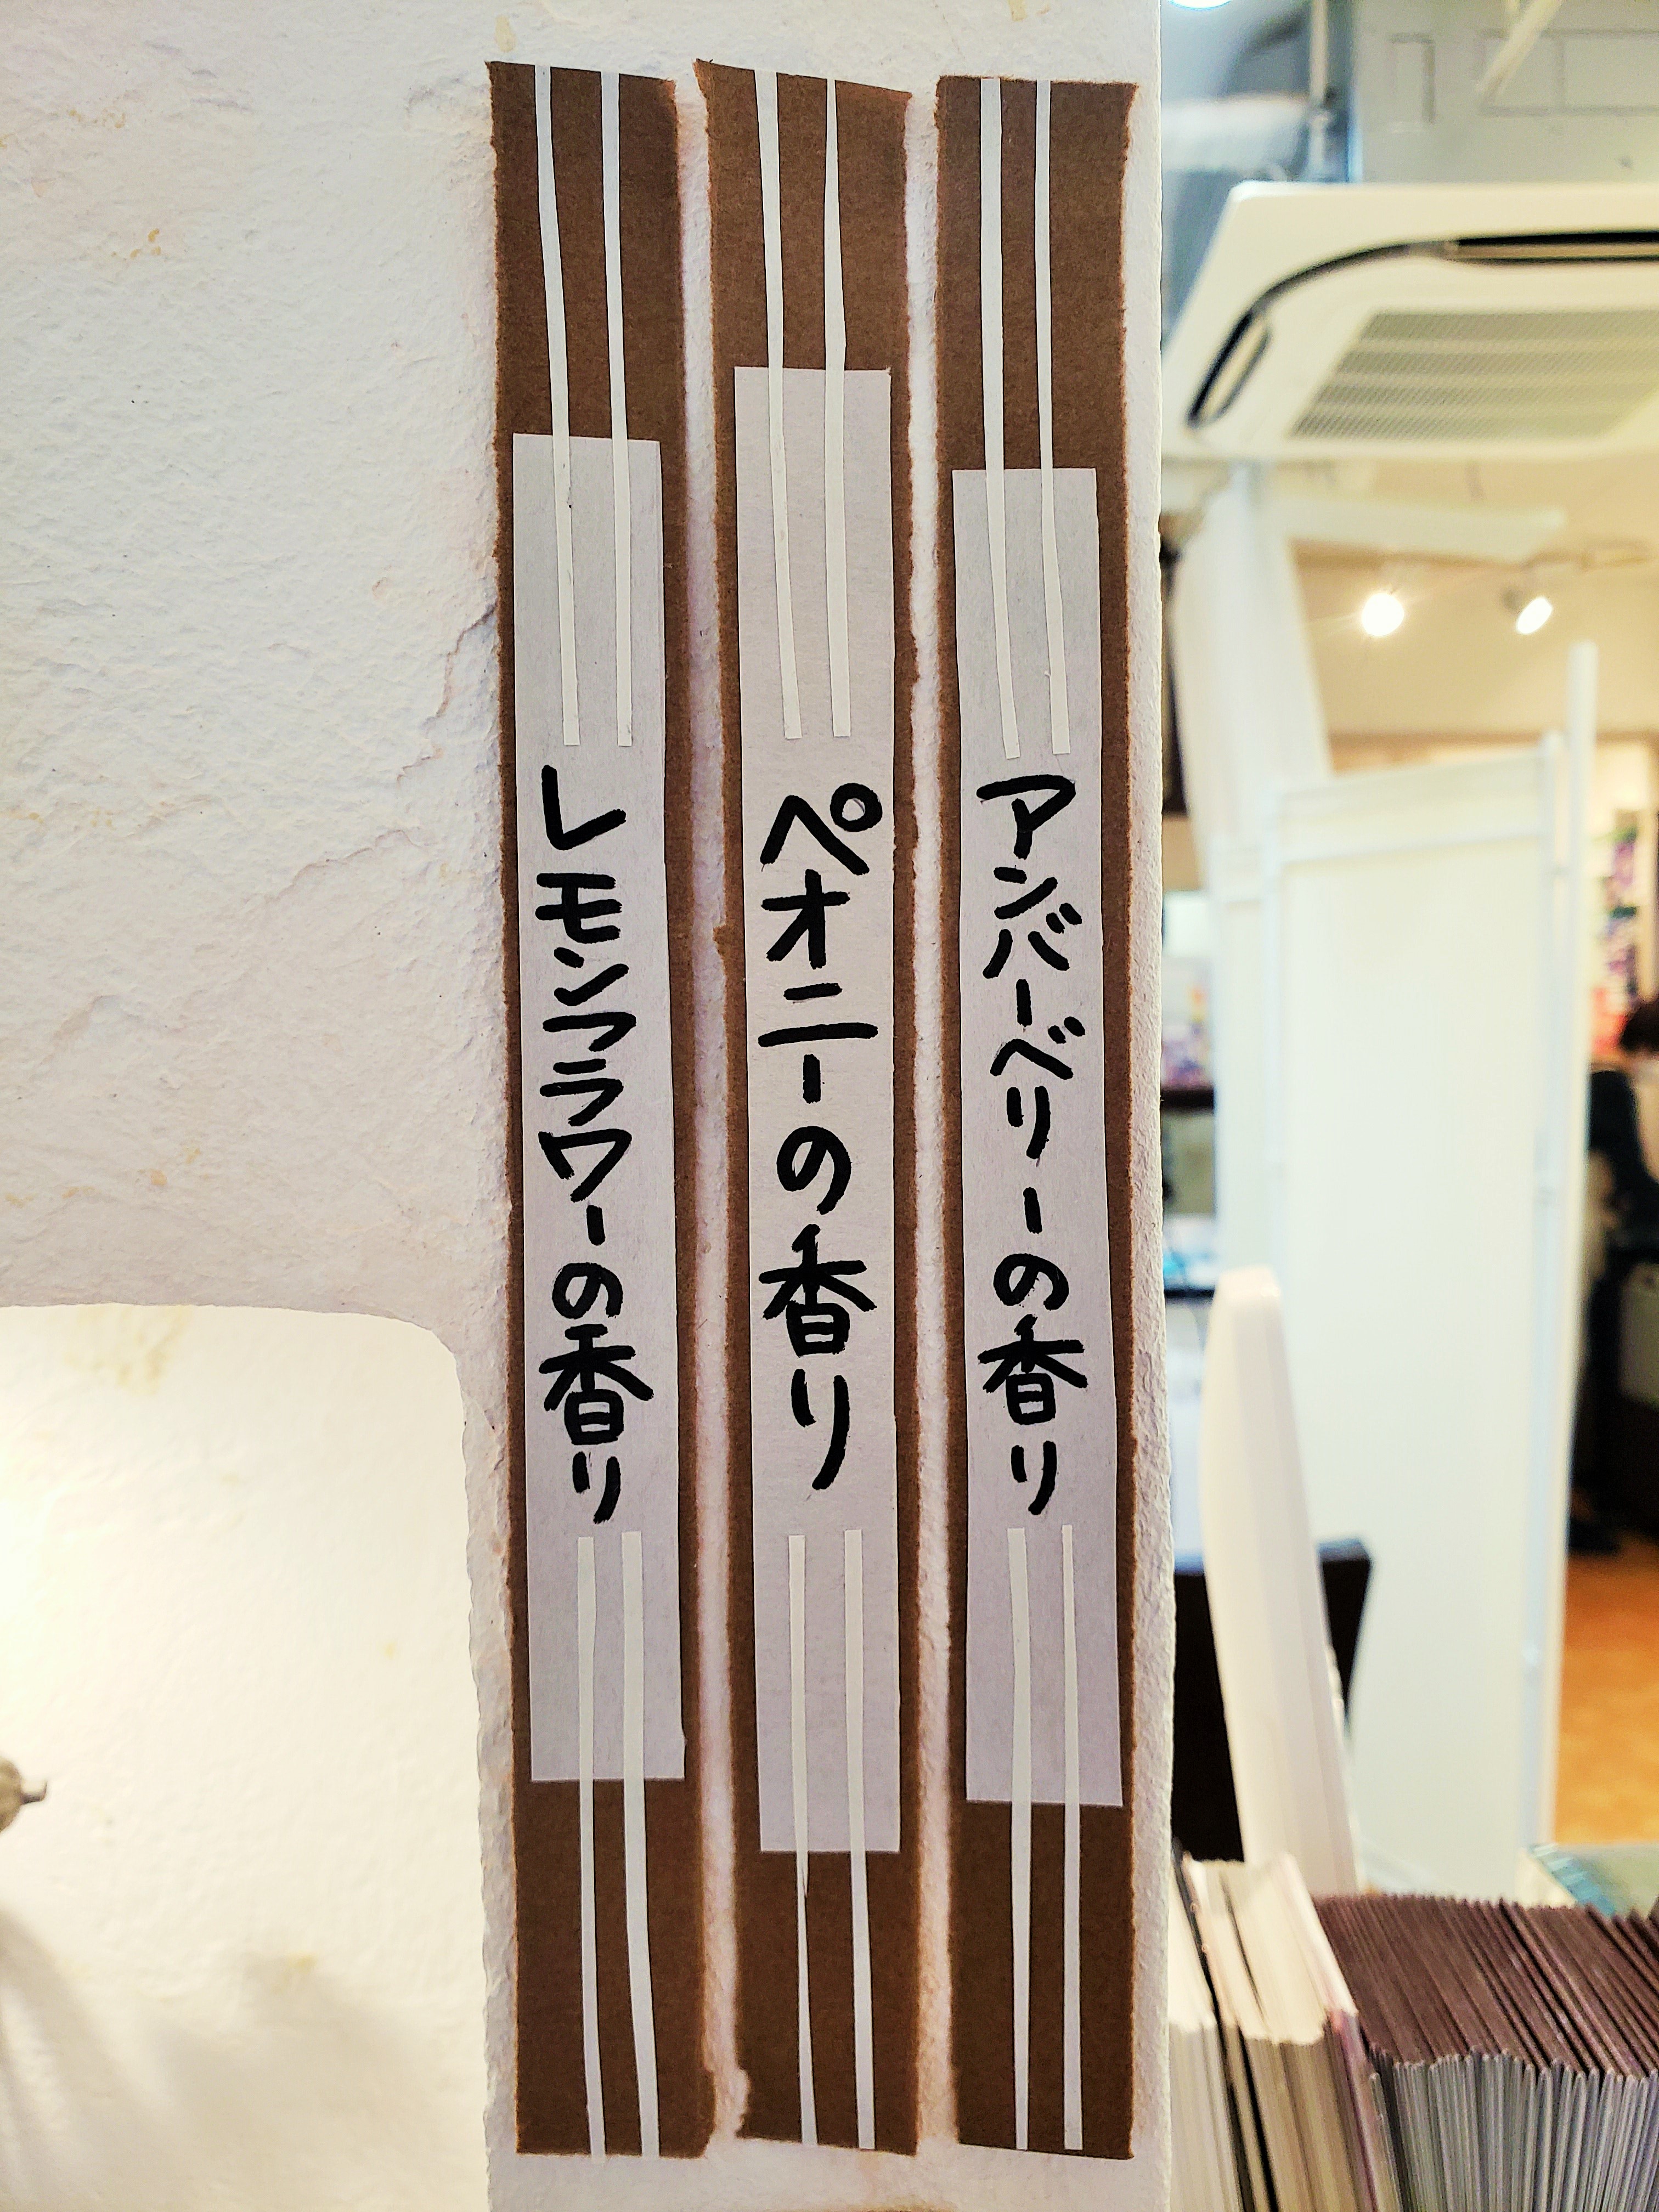 アンバーベリーの香り
ペオニーの香り
レモンフラワーの香り